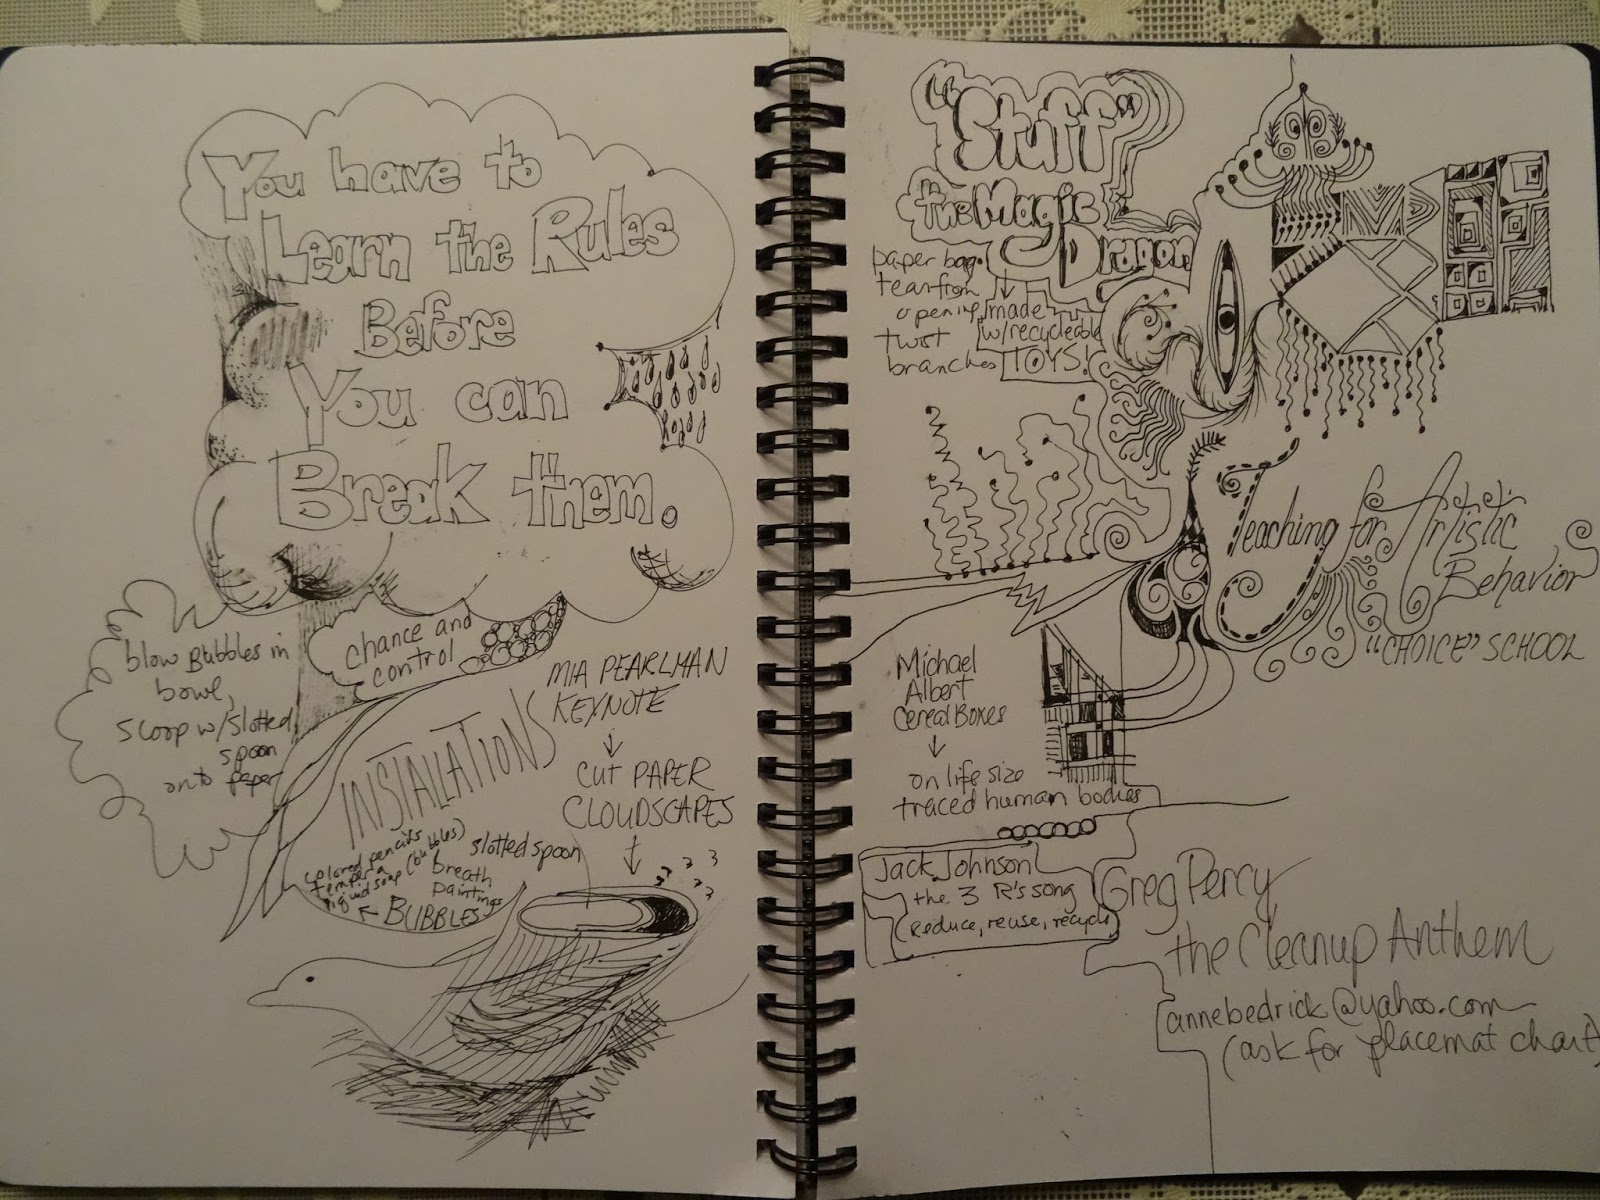 You have to
Learn the Rules
Before
You can
Break them.
chance and
control
blow Bubbles in
bowl,
scoop w/slotted
spoon
onto paper
INSTALLATIONS
MIA PEARLMAN
KEYNOTE
CUT PAPER
CLOUDSCAPES
slotted spoon
colored pencils
tempera
liquid soap (bubbles)
breath
paintings
BUBBLES
"Stuff"
the Magic
Dragon
paper bag
tear from
opening
twist
branches
made
w/recycleable
TOYS!
Teaching for Artistic
Behavior
"CHOICE" SCHOOL
Michael
Albert
Cereal Boxes
on life size
traced human bodies
Jack Johnson
the 3 R's song
(Reduce, reuse, recycle)
Greg Percy
the Cleanup Anthem
annebedrick@yahoo.com
(ask for placemat chart)